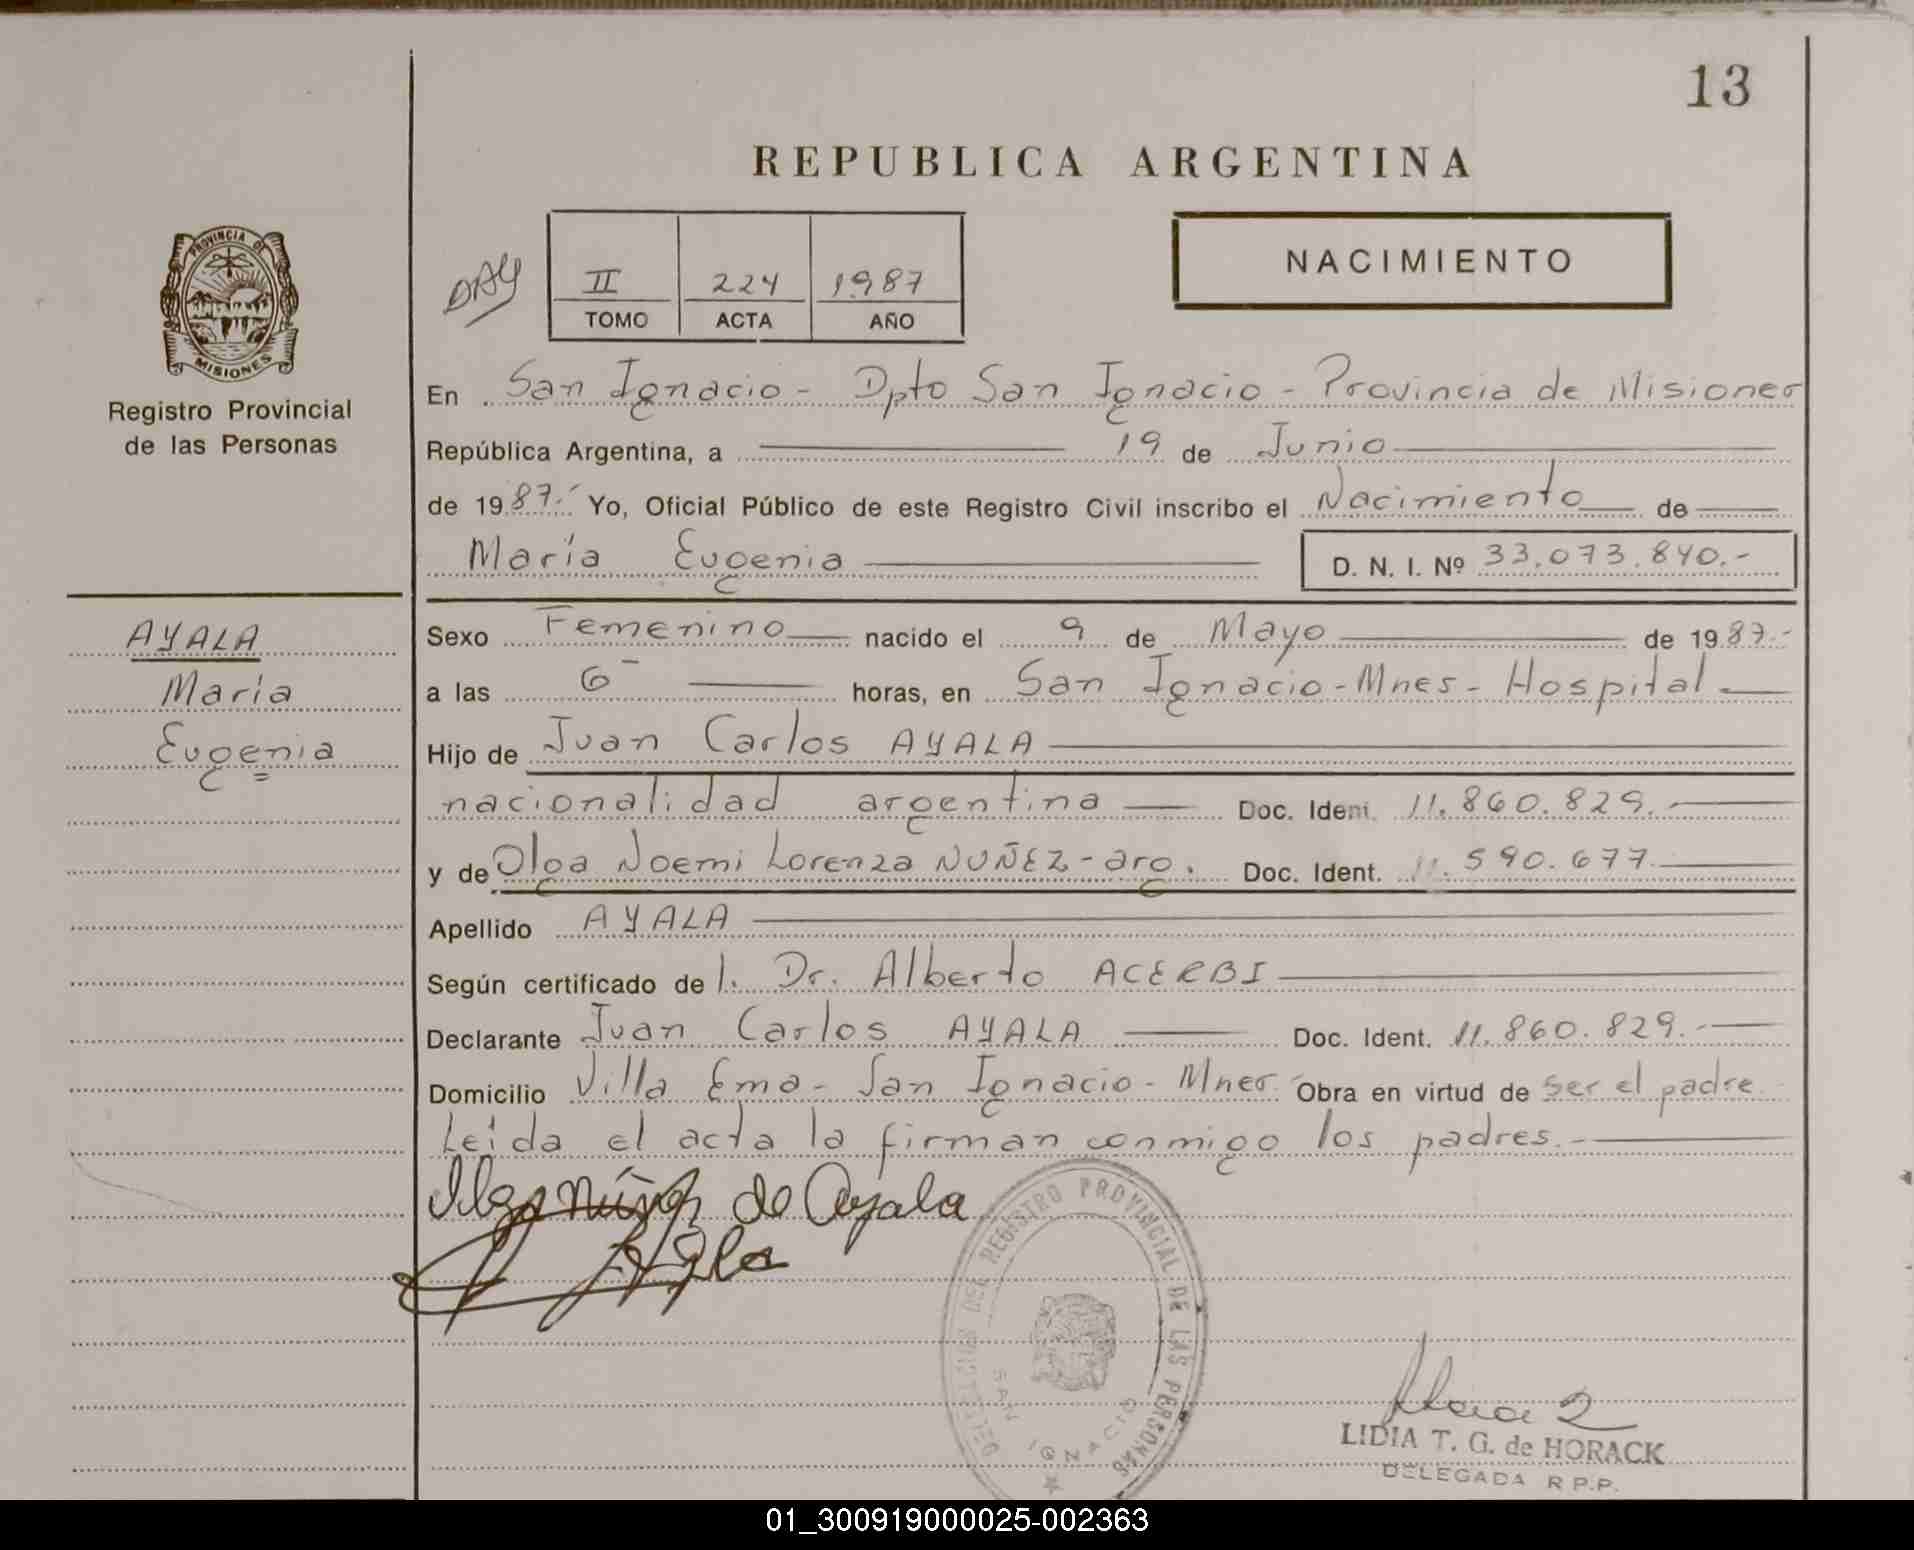 13
REPUBLICA ARGENTINA
PROVINCIA DE
MISIONES
Registro Provincial
de las Personas
II 224 1987
TOMO ACTA AÑO
NACIMIENTO
En San Ignacio - Dpto San Ignacio - Provincia de Misiones
República Argentina, a 19 de Junio
de 1987.- Yo, Oficial Público de este Registro Civil inscribo el Nacimiento de
María Eugenia D. N. I. Nº 33.073.840.-
AYALA
María
Eugenia
Sexo Femenino nacido el 9 de Mayo de 1987.-
a las 6 horas, en San Ignacio - Mnes - Hospital
Hijo de Juan Carlos AYALA
nacionalidad argentina Doc. Ident. 11.860.829.
y de Olga Noemi Lorenza NUÑEZ - arg. Doc. Ident. 11.590.677.
Apellido AYALA
Según certificado de l. Dr. Alberto ACERBI
Declarante Juan Carlos AYALA Doc. Ident. 11.860.829.-
Domicilio Villa Ema - San Ignacio - Mnes. Obra en virtud de ser el padre.
Leída el acta la firman conmigo los padres.-
Olga Núñez de Ayala
Ayala
DEL REGISTRO PROVINCIAL DE LAS PERSONAS
SAN IGNACIO
LIDIA T. G. de HORACK
DELEGADA R.P.P.
01_300919000025-002363